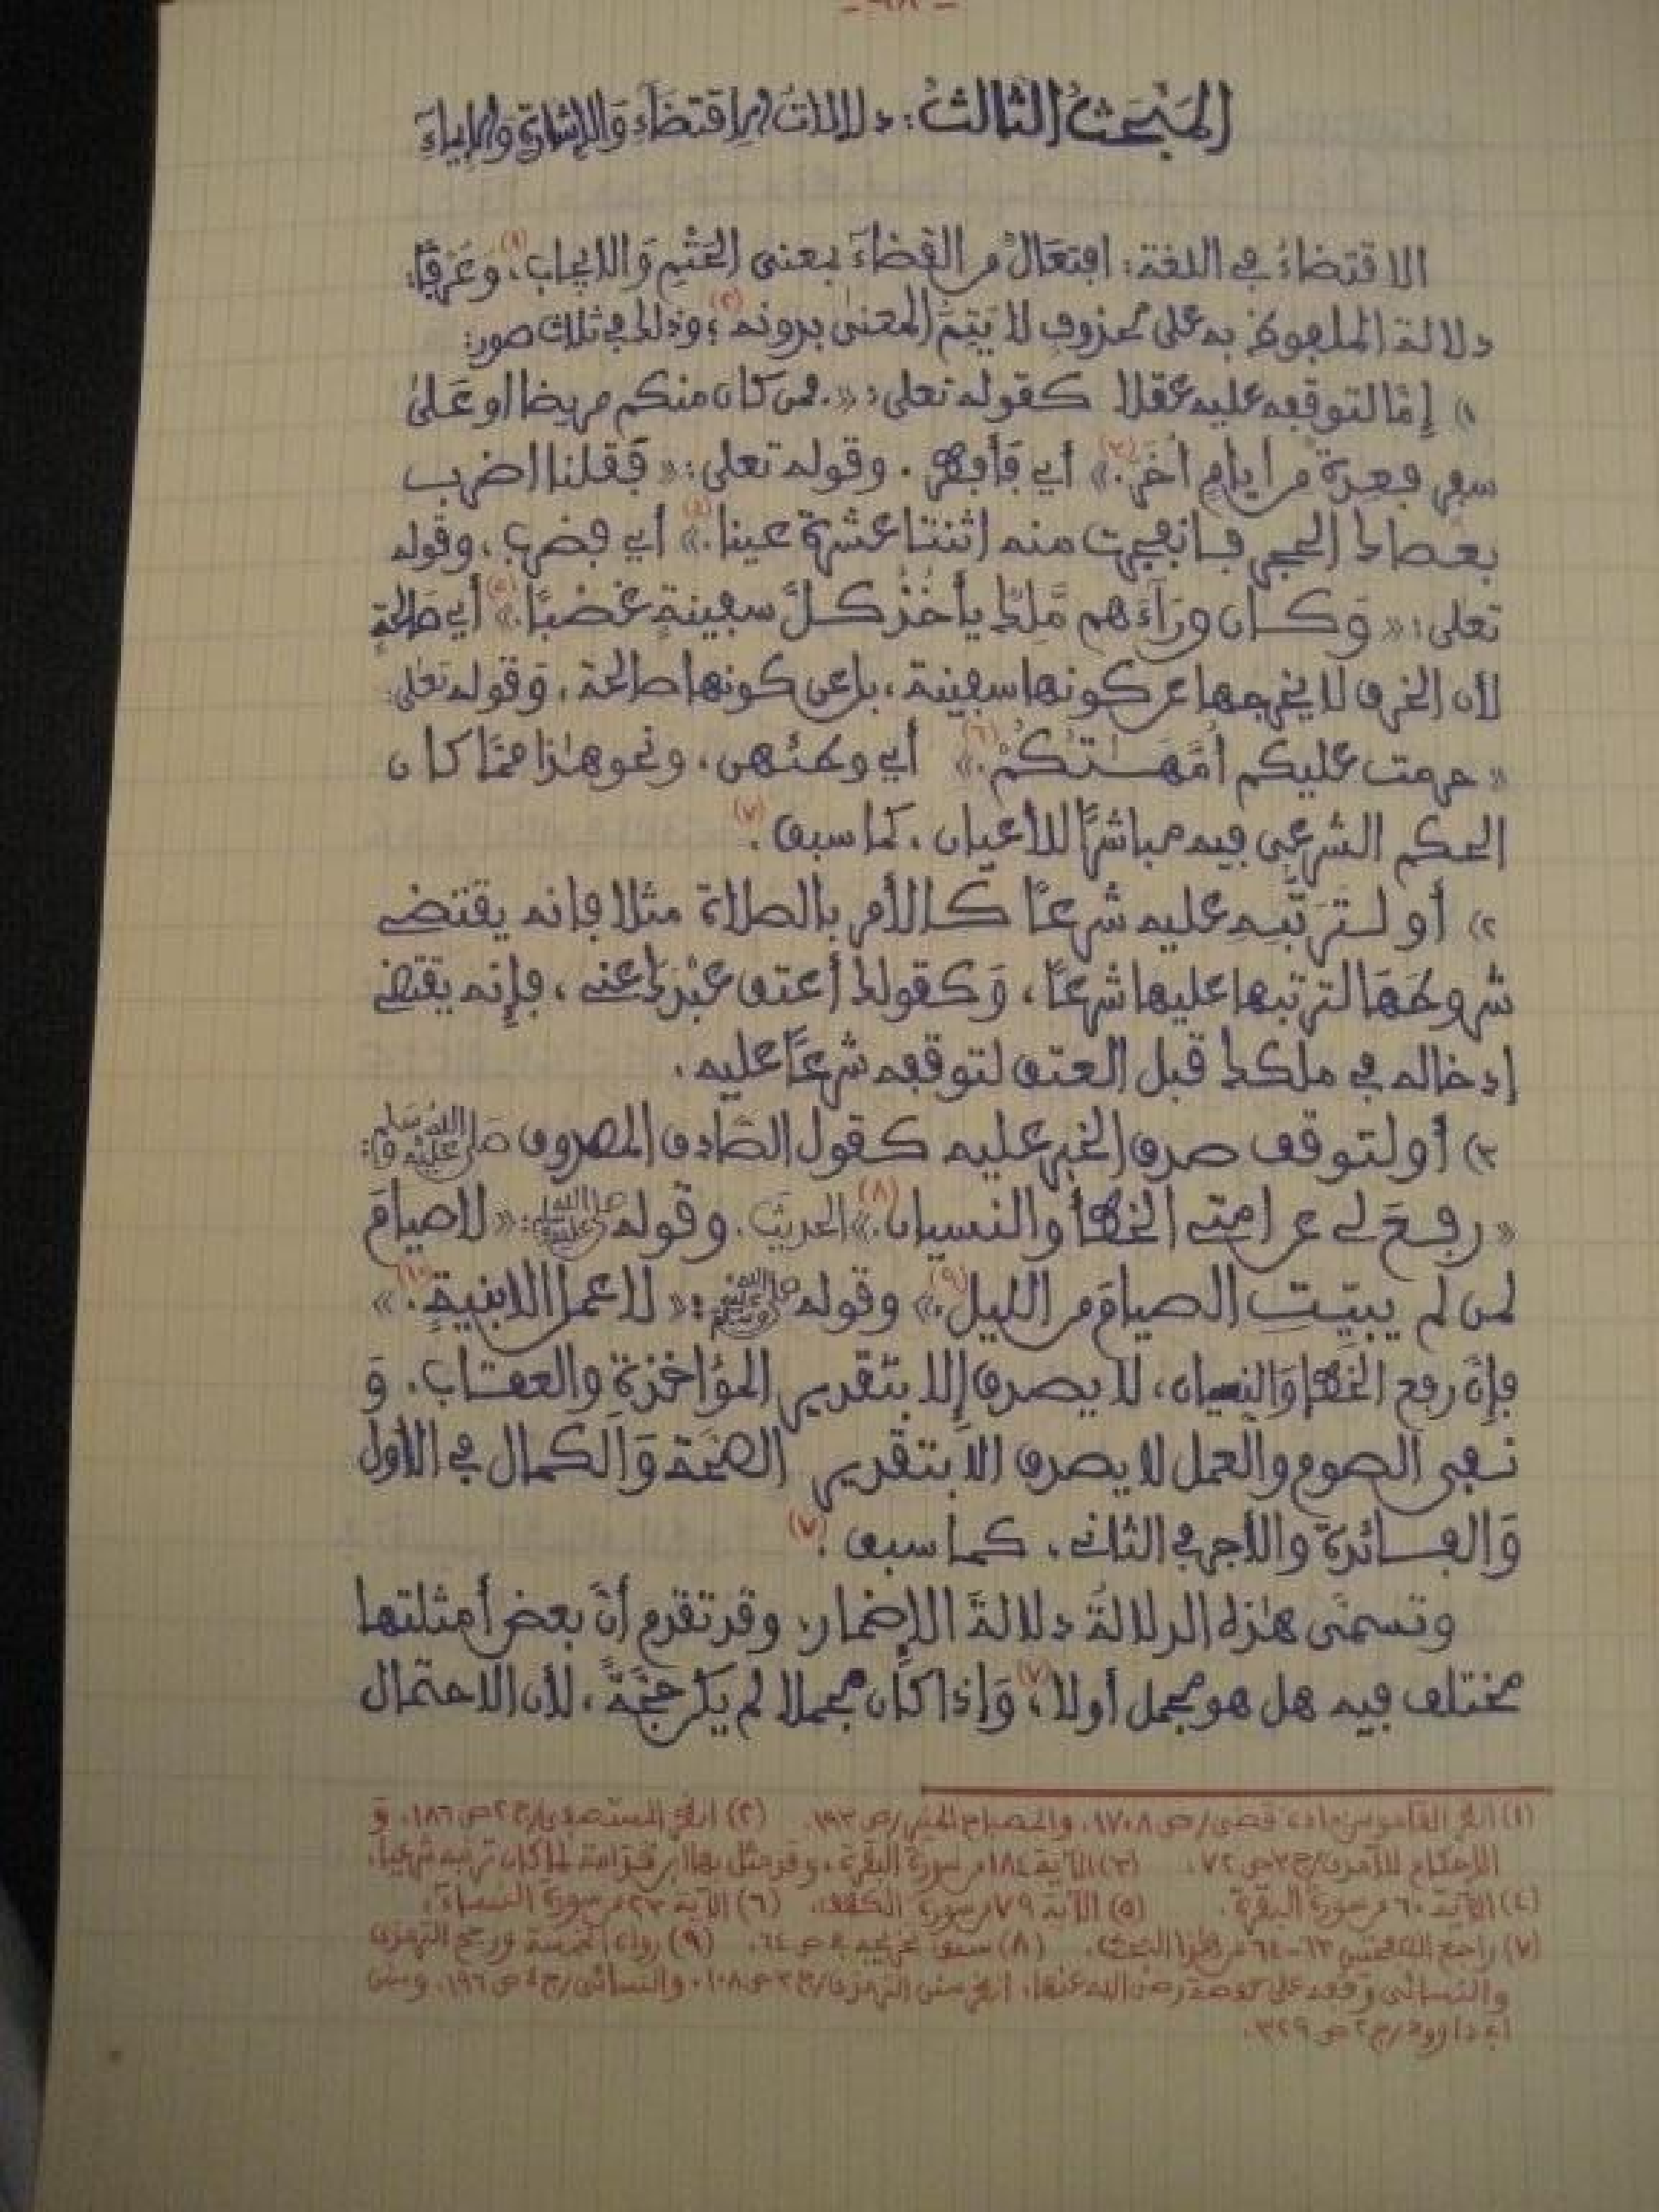 المَبْحَثُ الثَّالثُ: دلالاتُ الاِقتضَاءِ وَالإشارةِ وَالإيماءِ
الاقتضاءُ في اللغة: افتعَالٌ من القضاءَ بمعنى الحَتْمِ وَالايجاب،(١) وَعُرْفًا:
دلالة الملفوظ به على محذوفٍ لا يَتِمُّ المعنىٰ بدونه(٢)؛ وذلك في ثلاث صور:
١) إمَّا لتوقفه عليه عقلا كقوله تعلى: «فمن كان منكم مريضا او عَلىٰ
سفر فعدة من ايامٍ أُخَرَ.»(٣) أي فَأفطر. وقوله تعلى: «فَقلنا اضرب
بعصاك الحجر فانفجرت منه اثنتا عشرة عينا.»(٤) أي فضرب، وقوله
تعلى: «وَكان ورَآءَهم مَّلِكٌ يأخُذُ كلَّ سفينةٍ غَصْبًا.»(٥) أي صَالحةٍ
لأن الخرق لا يخرجها عن كونها سفينة، بل عن كونها صالحة، وَقوله تعلى:
«حرمت عليكم أُمَّهَـٰتُكُمْ.»(٦) أي وطئُهن، ونحو هٰذا ممَّا كان
الحكم الشرعي فيه مباشرًا للأعيان، كما سبق.(٧)
٢) أو لـتَرَتُّبِهِ عليه شرعًا كالأمر بالصلاة مثلا فإنه يقتضي
شروطَهَا لترتبها عليها شرعًا، وَكقولك أعتق عَبْدَكَ عني، فإنه يقتضي
إدخاله في ملكك قبل العتق لتوقفه شرعًا عليه.
٣) أو لتوقف صدق الخبر عليه كقول الصَّادق المصدوق صَلى اللهُ عَلَيْهِ وَسَلم:
«رفعَ لي عن امتي الخطأ والنسيان.»(٨) الحديث. وقوله صلى الله عليه وسلم: «لا صيامَ
لمن لم يبيّتِ الصيامَ من الليل.»(٩) وقوله صلى الله عليه وسلم: «لا عمل الا بنيةٍ.»(١٠)
فإنَّ رفع الخطإ وَالنسيان، لا يصدق إلا بتقدير المؤاخذة والعقـاب. وَ
نفي الصوم والعمل لا يصدق الا بتقدير الصِّحَّة وَالكمال في الأول
وَالفـائدة والأجر في الثاني، كما سبق.(٧)
وتسمىٰ هٰذه الدلالةُ دلالةَ الإضمار، وقد تقدم أنَّ بعض أمثلتها
مختلف فيه هل هو مجمل أولا،(٧) وَإذا كان مجملا لم يكن حجَّةً، لأن الاحتمال
(١) انظر القاموس مادة قضى/ص ١٧٠٨، والمصباح المنير/ص ١٩٣. (٢) انظر المستصفى/ج ٢ ص ١٨٦، وَ
الإحكام للآمدي/ج ٣ ص ٧٢. (٣) الآية ١٨٤ من سورة البقرة، وقد مثل بها ابن قدامة لما كان ترتبه شرعيا.
(٤) الآية ٦٠ من سورة البقرة. (٥) الآية ٧٩ من سورة الكهف. (٦) الآية ٢٣ من سورة النساء.
(٧) راجع الصفحتين ٦٣-٦٤ من هٰذا البحث. (٨) سبق تخريجه ص ٦٤. (٩) رواه الخمسة ورجح الترمذي
والنسائي وقفه على حفصة رضي الله عنها، انظر سنن الترمذي/ج ٣ ص ١٠٨، والنسائي/ج ٤ ص ١٩٦، وسنن
ابي داوود/ج ٢ ص ٣٢٩.